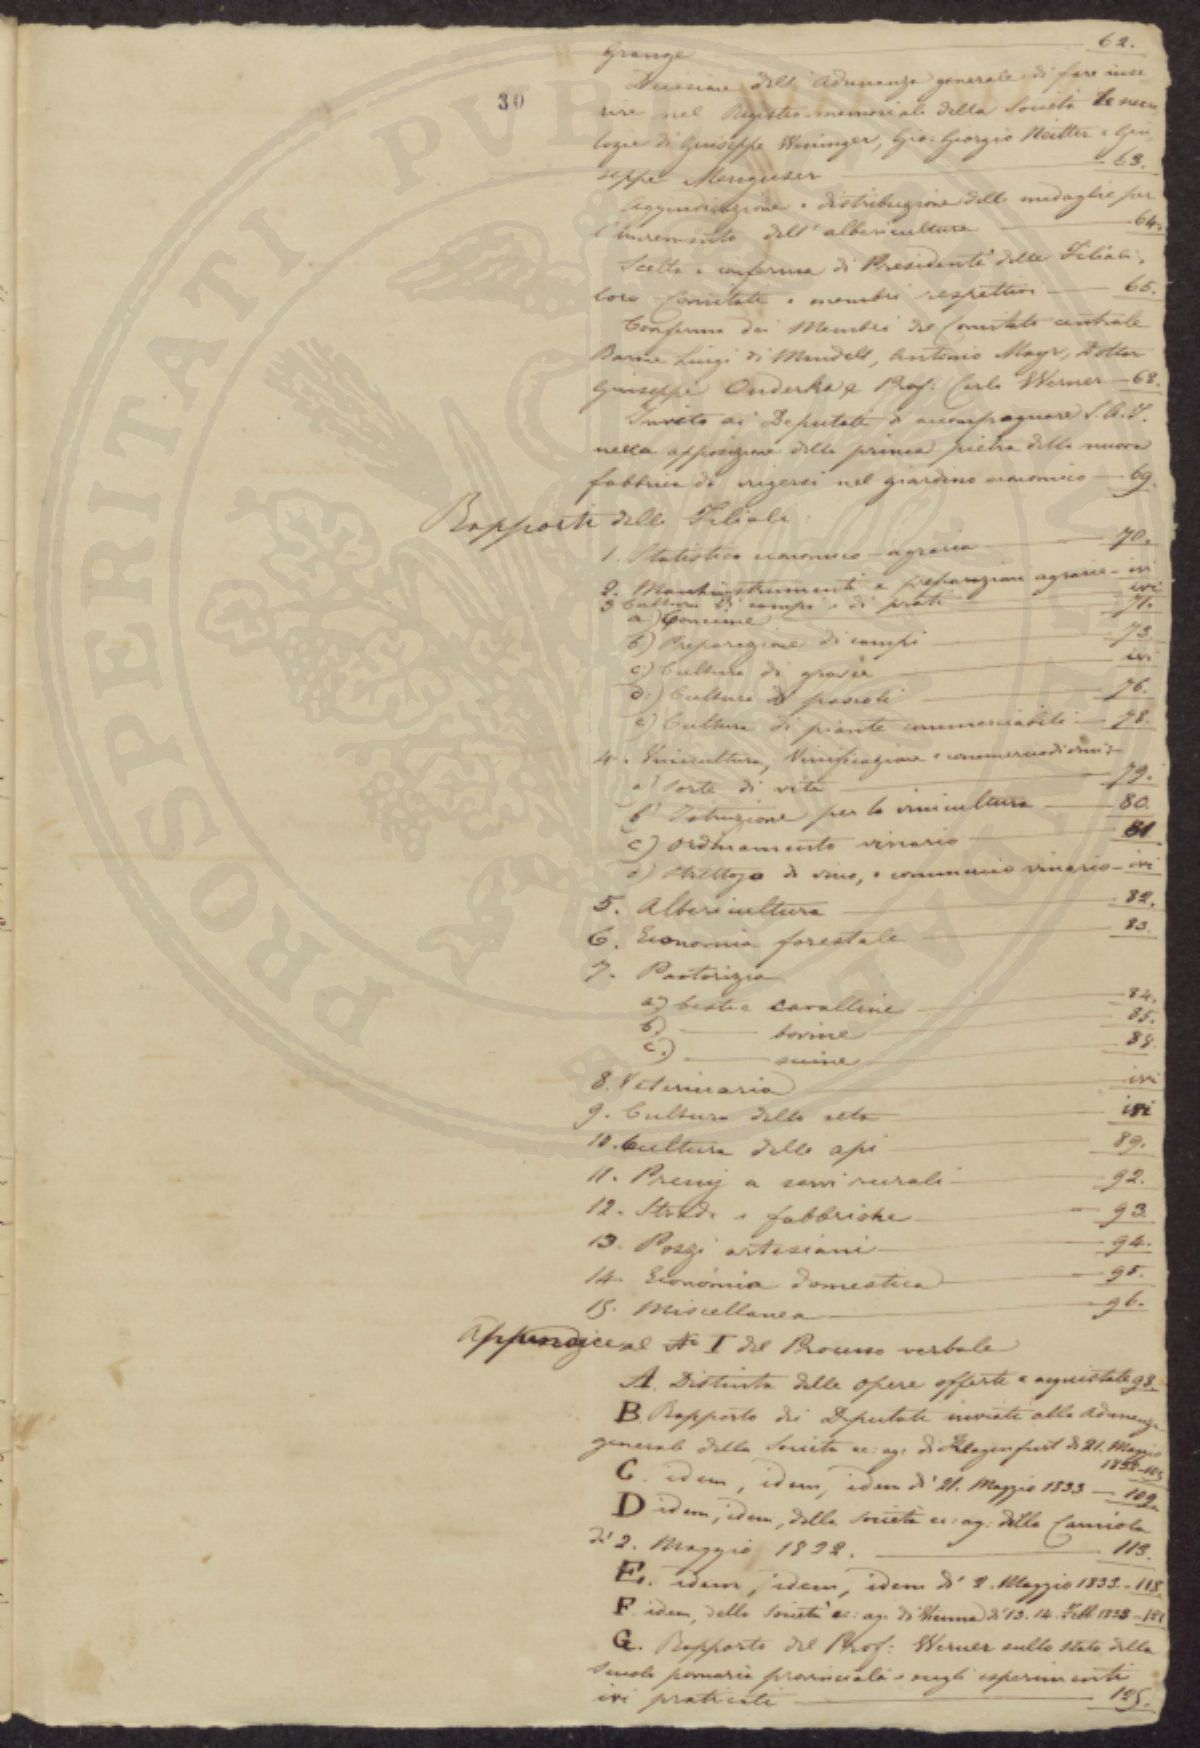 Grange 62.
30
Decisione dell' adunanza generale di fare inse-
rire nel Registro-memoriale della Società le necro-
logie di Giuseppe Weninger, Gio: Giorgio Reitter e Giu-
seppe 63.
Aggiudicazione e distribuzione delle medaglie per
l'incremento dell' albericultura 64.
Scelta e conferma di Presidenti delle Filiali,
loro Comitati e membri respettivi 65.
Conferma dei Membri del Comitato centrale
Barone Luigi di Mandell, Antonio Mayr, Dottor
Giuseppe Onderka e Prof: Carlo Werner 68.
Invito ai Deputati d'accompagnare S. A. I.
nella apposizione della prima pietra della nuova
fabbrica da erigersi nel giardino economico 69.
Rapporti delle Filiali:
1. Statistica economico-agraria 70.
2. e preparazioni agrarie ivi
3 Cultura di campi e di prati ivi
a.) Concime 71.
b) Preparazione di campi 73
c) Cultura di ivi
d.) Cultura di 76.
e) Cultura di piante commerciabili 78.
4. Vinicultura, Vinificazione e commercio di vini:
a) Sorte di vite 79.
b) Istruzione per la vinicultura 80.
c) Ordinamento vinario 81.
d) di vino, e commercio vinario ivi
5. Albericultura 82.
6. Economia forestale 83.
7. Pastorizia
a) bestie cavalline 84.
b) —— bovine 85.
c.) —— suine 88.
8. Veterinaria ivi
9. Cultura della seta ivi
10. Cultura delle api 89.
11. Premj a servi rurali 92.
12. Strade e fabbriche 93.
13. Pozzi artesiani 94.
14. Economia domestica 95.
15. Miscellanea 96.
Appendice al No I del Processo verbale
A. Distinta delle opere offerte e acquistate 98.
B. Rapporto dei Deputati inviati alla Adunanza
generale della Società ec: ag: di Klagenfurt di 21. Maggio
1832
C. idem, idem, idem di 21. Maggio 1833 — 109.
D idem, idem, della società ec: ag: della Carniola
di 2. Maggio 1832. 113.
E. idem, idem, idem di 2. Maggio 1833 - 118.
F. idem, della Società ec: ag: di Vienna di 13. 14. Febb 1833
G. Rapporto del Prof: Werner sullo stato della
Scuola pomaria provinciale e sugli esperimenti
ivi praticati 125.
PROSPERITATI PVBLICAE